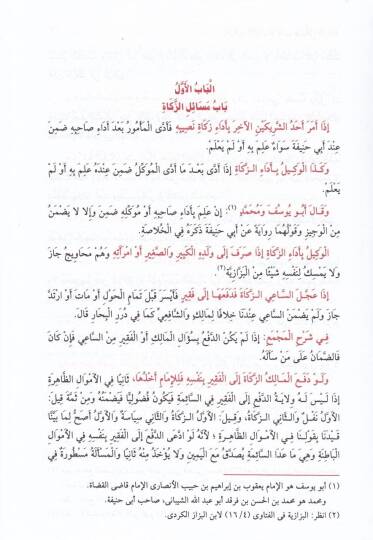 الْبَابُ الْأَوَّلُ
بَابُ مَسَائِلِ الزَّكَاةِ
إِذَا أَمَرَ أَحَدُ الشَّرِيكَيْنِ الْآخَرَ بِأَدَاءِ زَكَاةِ نَصِيبِهِ فَأَدَّى الْمَأْمُورُ بَعْدَ أَدَاءِ صَاحِبِهِ ضَمِنَ
عِنْدَ أَبِي حَنِيفَةَ سَوَاءٌ عَلِمَ بِهِ أَوْ لَمْ يَعْلَمْ.
وَكَذَا الْوَكِيلُ بِأَدَاءِ الزَّكَاةِ إِذَا أَدَّى بَعْدَ مَا أَدَّى الْمُوَكِّلُ ضَمِنَ عِنْدَهُ عَلِمَ بِهِ أَوْ لَمْ
يَعْلَمْ.
وَقَالَ أَبُو يُوسُفَ وَمُحَمَّدٌ (١): إِنْ عَلِمَ بِأَدَاءِ صَاحِبِهِ أَوْ مُوَكِّلِهِ ضَمِنَ وَإِلَّا لَا يَضْمَنُ
مِنْ الْوَجِيزِ وَقَوْلُهُمَا رِوَايَةٌ عَنْ أَبِي حَنِيفَةَ ذَكَرَهُ فِي الْخُلَاصَةِ.
الْوَكِيلُ بِأَدَاءِ الزَّكَاةِ إِذَا صَرَفَ إِلَى وَلَدِهِ الْكَبِيرِ وَالصَّغِيرِ أَوْ امْرَأَتِهِ وَهُمْ مَحَاوِيجُ جَازَ
وَلَا يَمْسِكُ لِنَفْسِهِ شَيْئًا مِنْ الْبَزَّازِيَّةِ(٢).
إِذَا عَجَّلَ السَّاعِي الزَّكَاةَ فَدَفَعَهَا إِلَى فَقِيرٍ فَأَيْسَرَ قَبْلَ تَمَامِ الْحَوْلِ أَوْ مَاتَ أَوْ ارْتَدَّ
جَازَ وَلَمْ يَضْمَنْ السَّاعِي عِنْدَنَا خِلَافًا لِمَالِكٍ وَالشَّافِعِيِّ كَمَا فِي دُرَرِ الْبِحَارِ قَالَ.
فِي شَرْحِ الْمَجْمَعِ: إِذَا لَمْ يَكُنْ الدَّفْعُ بِسُؤَالِ الْمَالِكِ أَوْ الْفَقِيرِ مِنْ السَّاعِي فَإِنْ كَانَ
فَالضَّمَانُ عَلَى مَنْ سَأَلَهُ.
وَلَوْ دَفَعَ الْمَالِكُ الزَّكَاةَ إِلَى الْفَقِيرِ بِنَفْسِهِ فَلِلْإِمَامِ أَخْذُهَا، ثَانِيًا فِي الْأَمْوَالِ الظَّاهِرَةِ
إِذَا لَيْسَ لَهُ وِلَايَةُ الدَّفْعِ إِلَى الْفَقِيرِ فِي السَّائِمَةِ فَيَكُونُ فُضُولِيًّا فَيَضْمَنُهُ وَمِنْ ثَمَّةَ قِيلَ:
الْأَوَّلُ نَفْلٌ وَالثَّانِي الزَّكَاةُ، وَقِيلَ: الْأَوَّلُ الزَّكَاةُ وَالثَّانِي سِيَاسَةٌ وَالْأَوَّلُ أَصَحُّ لِمَا بَيَّنَّا
قَيَّدْنَا بِقَوْلِنَا فِي الْأَمْوَالِ الظَّاهِرَةِ؛ لِأَنَّهُ لَوْ ادَّعَى الدَّفْعَ إِلَى الْفَقِيرِ بِنَفْسِهِ فِي الْأَمْوَالِ
الْبَاطِنَةِ وَهِيَ مَا عَدَا السَّائِمَةِ يُصَدَّقُ مَعَ الْيَمِينِ وَلَا يُؤْخَذُ مِنْهُ ثَانِيًا وَالْمَسْأَلَةُ مَسْطُورَةٌ فِي
(١) أبو يوسف هو الإمام يعقوب بن إبراهيم بن حبيب الأنصاري الإمام قاضي القضاة.
ومحمد هو محمد بن الحسن بن فرقد أبو عبد الله الشيباني، صاحب أبي حنيفة.
(٢) انظر: البزازية في الفتاوى (٤/ ١٦) لابن البزاز الكردي.